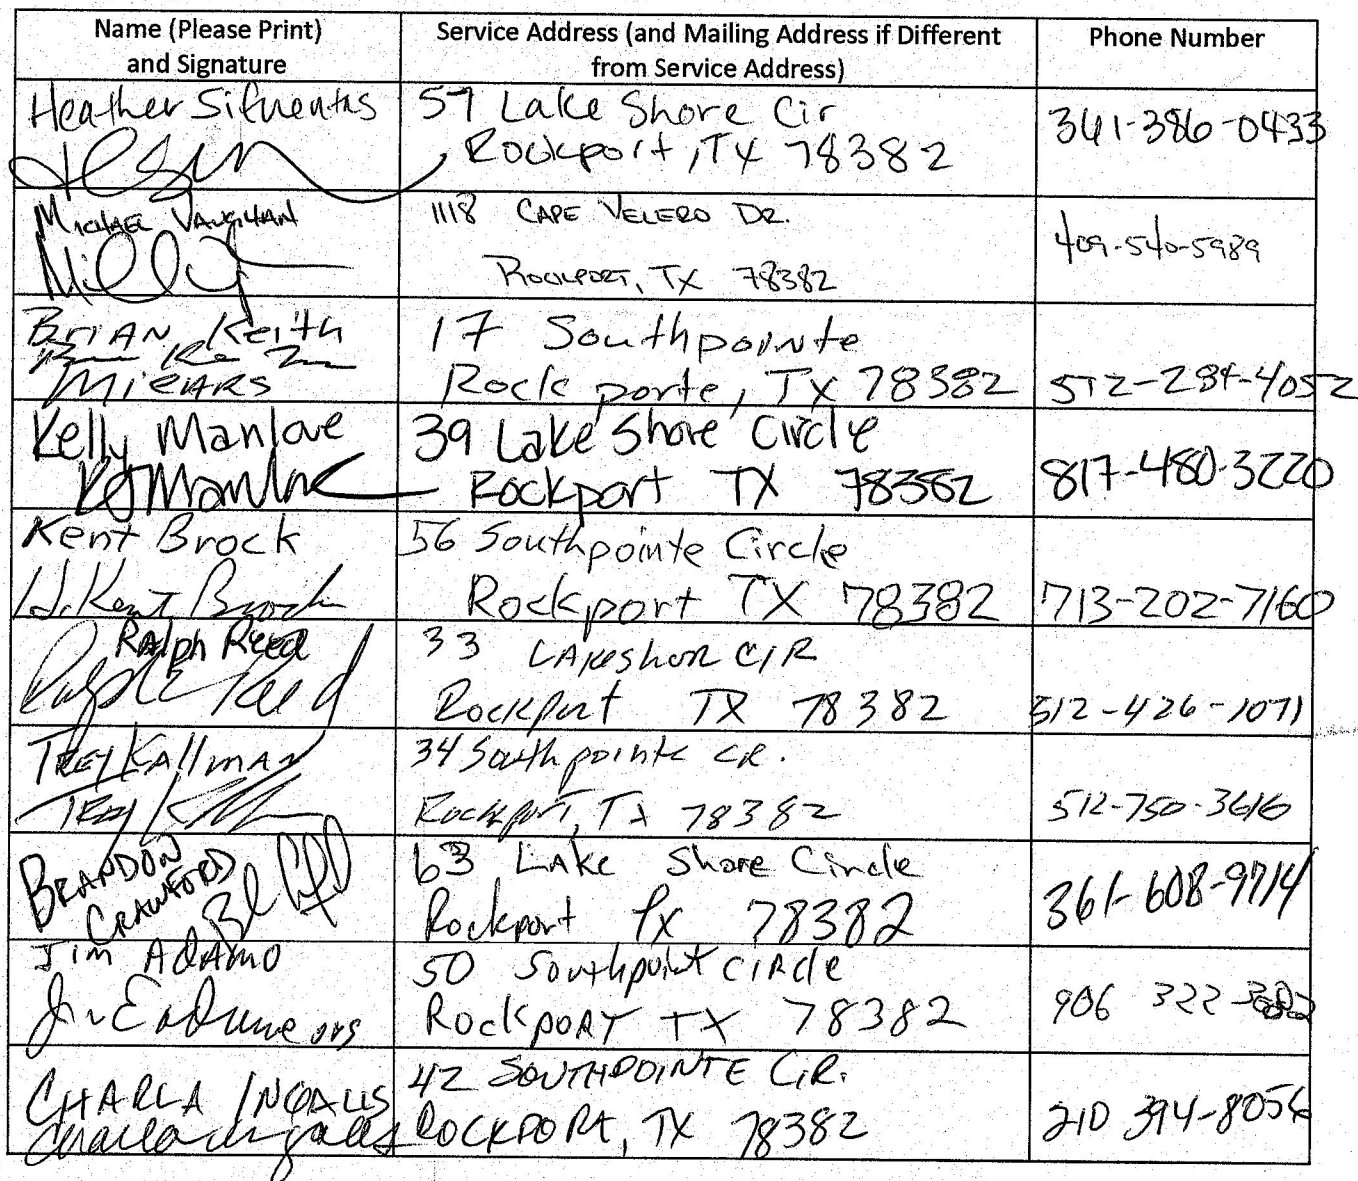 Name (Please Print)
and Signature
Service Address (and Mailing Address if Different
from Service Address)
Phone Number
Heather Sifuentes
57 Lake Shore Cir
Rockport, TX 78382
361-386-0433
Michael Vaughan
1118 Cape Velero Dr.
Rockport, TX 78382
409-540-5989
Brian Keith
Miears
17 Southpointe
Rock porte, Tx 78382
512-284-4052
Kelly Manlove
KJManlove
39 Lake Shore Circle
Rockport TX 78382
817-480-3220
Kent Brock
H. Kent Brock
56 Southpointe Circle
Rockport TX 78382
713-202-7160
Ralph Reed
Ralph Reed
33 Lakeshor Cir
Rockport TX 78382
512-426-1071
Trey Kallman
Trey
34 Southpointe CR.
Rockport, Tx 78382
512-750-3616
Brandon
Crawford
63 Lake Shore Circle
Rockport Tx 78382
361-608-9714
Jim Adamo
50 Southpoint Circle
Rockport TX 78382
906 322
Charla Ingalls
Charla Ingalls
42 Southpointe Cir.
Rockport, TX 78382
210 394-8056